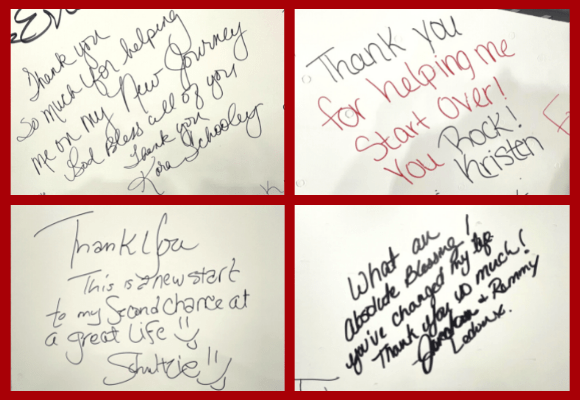 Thank you
so much for helping
me on my New Journey
God Bless all of you
Thank you
Kora Schooley
Thank you
for helping me
Start Over!
You Rock!
Kristen
Thank You
This is a new start
to my Second chance at
a great Life
Shultzie
What an
Absolute Blessing!
you've changed my life
Thank you so much!
& Rammy